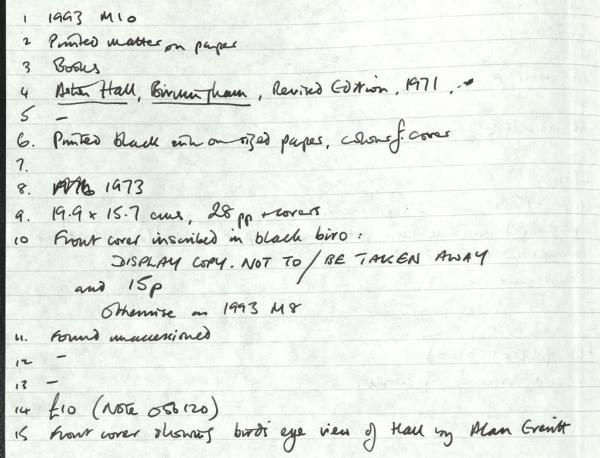 1 1993 M10
2 Printed matter on paper
3 Books
4 Aston Hall, Birmingham, Revised Edition, 1971,
5 –
6. Printed black ink on sized paper, colour f. cover
7.
8. 1973
9. 19.9 x 15.7 cms, 28 pp + covers
10 Front cover inscribed in black biro:
DISPLAY COPY. NOT TO / BE TAKEN AWAY
and 15p
Otherwise as 1993 M8
11. Found unaccessioned
12 –
13 –
14 £10 (Note 050120)
15 Front cover showing bird's eye view of Hall by Alan Everitt